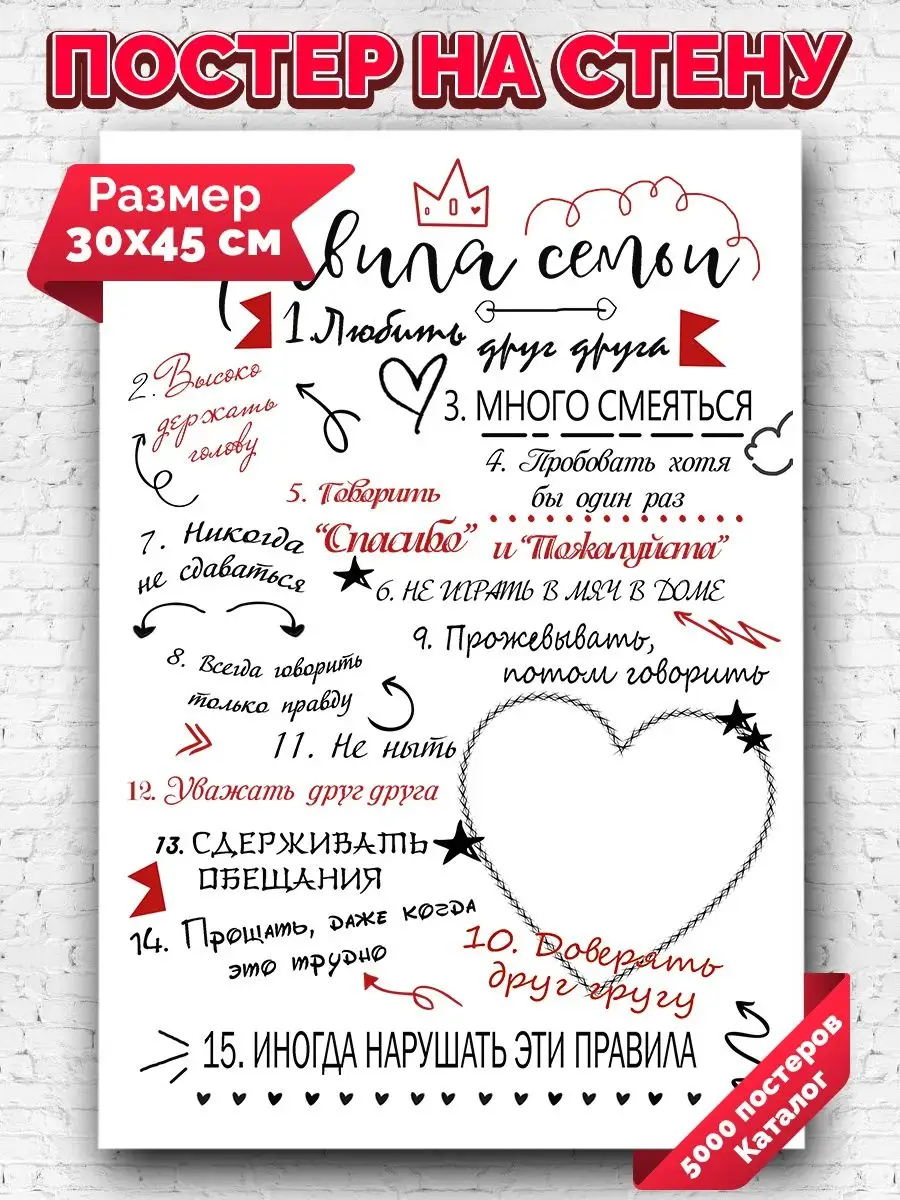 ПОСТЕР НА СТЕНУ
Размер
30х45 см
семьи
1. Любить
друг друга
2. Высоко
держать
голову
3. МНОГО СМЕЯТЬСЯ
4. Пробовать хотя
бы один раз
5. Говорить
"Спасибо" и "Пожалуйста"
6. НЕ ИГРАТЬ В МЯЧ В ДОМЕ
7. Никогда
не сдаваться
8. Всегда говорить
только правду
9. Прожевывать,
потом говорить
11. Не ныть
12. Уважать друг друга
13. СДЕРЖИВАТЬ
ОБЕЩАНИЯ
14. Прощать, даже когда
это трудно
10. Доверять
друг другу
15. ИНОГДА НАРУШАТЬ ЭТИ ПРАВИЛА
5000 постеров
Каталог